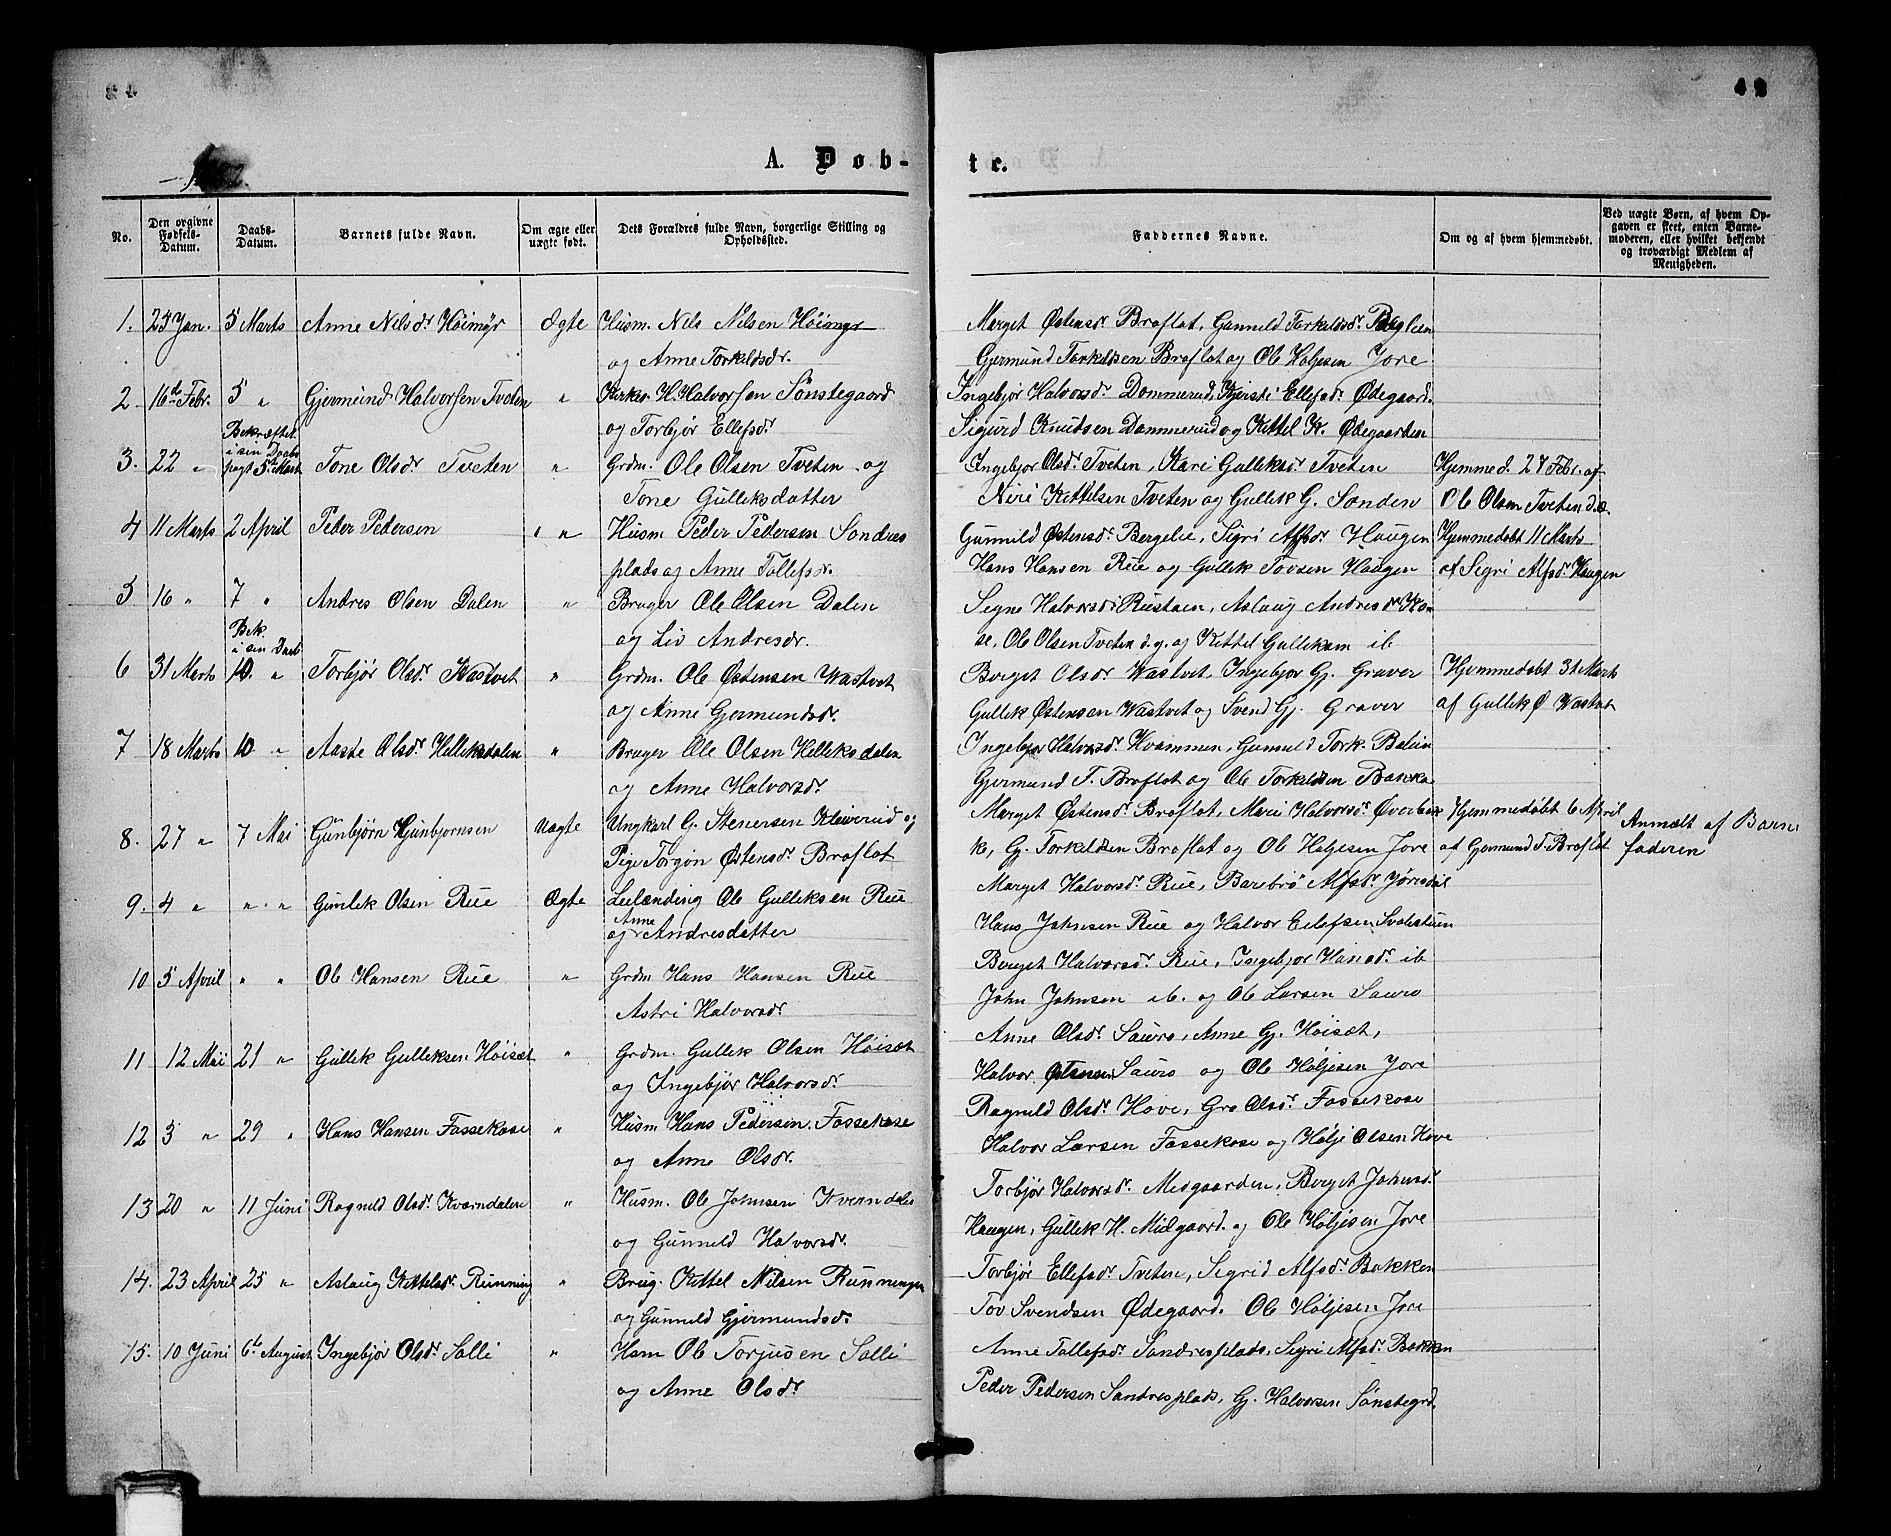 49
A. Døb-
te.
No.
Den opgivne Fødsels-Datum.
Daabs-Datum.
Barnets fulde Navn.
Om ægte eller uægte født.
Dets Forældres fulde Navn, borgerlige Stilling og Opholdssted.
Faddernes Navne.
Om og af hvem hjemmedøbt.
Ved uægte Børn, af hvem Opgaven er skeet, enten Barnemoderen, eller hvilket bekjendt og troværdigt Medlem af Menigheden.
1. 23 Jan. 5 Marts Anne Nilsdr. Høimyr Ægte Husm. Nils Nilsen Høimyr
og Anne Torkildsdr.
Marget Østensdr. Broflot, Gunnild Torkildsdr.
Gjermund Torkildsen Broflot og Ole Holjesen Jore
2 16de Febr. 5 " Gjermund Halvorsen Tveten " Kirkes. H. Halvorsen Sønstegaard
og Torbjør Ellefsdr
Ingebjør Halvorsdr. Dommerud, Kjersti Ellefsdr. Ødegaard.
Sigurd Knudsen Dammerud og Kittel K. Ødegaarden
3. 22 " Bekræftet i sin Daabspagt 5te Mart Tone Olsdr Tveten " Grdm. Ole Olsen Tveten og
Tone Gulleksdatter
Ingebjør Olsdr. Tveten, Kari Gulleksdr. Tveten
Niri Kittelsen Tveten og Gullek G. Sanden
Hjemmed. 27 Febr. af
Ole Olsen Tveten d.æ.
4 11 Marts 2 April Peder Pedersen " " Husm Peder Pedersen Sondres
plads og Anne Tollefsdr.
Gunnild Østensdr. Bergelie, Sigri Alfsdr Haugen
Hans Hansen Rue og Gullek Tovsen Haugen
Hjemmedøbt 11 Marts
af Sigri Alfsdr. Haugen
5 16 " 7 " Andres Olsen Dalen " Bruger Ole Olsen Dalen
og Liv Andresdr.
Signe Halvorsdr Rustaen, Aslaug Andresdr Ko-
se, Ole Olsen Tveten d.y. og Kittel Gulleksen ib
6 31 Marts Bek. i sin Daab 10. " Torbjør Olsdr. Kastvet " Grdm. Ole Østensen Wastvet
og Anne Gjermundsdr.
Berget Olsdr Wastvet, Ingebjør Gj. Graver
Gullek Østensen Wastvet og Svend Gj. Graver
Hjemmedøbt 31 Marts
af Gullek Ø Wastvet
7 18 Marts 10 " Aaste Olsdr. Helleksdalen " Bruger Ole Olsen Helleksdalen
og Anne Halvorsdr.
Ingebjør Halvorsdr. Kvammen, Gunnild Tork.
Gjermund T. Broflot og Ole Torkildsen Bakka
8. 27 " 7 Mai Gunbjørn Gunbjornsen Uægte Ungkarl G. Stenersen Kleiverud og
Pige Torgon Østensdr. Broflot
Marget Østensdr. Broflot, Mari Halvorsdr. Øverbø
k, G. Torkildsen Broflot og Ole Holjesen Jore
Hjemmedøbt 6 April
af Gjermund T. Broflot
Anmelt af Barne
faderen
9. 4 " " " Gunlek Olsen Rue Ægte Leilænding Ole Gulleksen Rue
og Anne Andresdatter
Marget Halvorsdr. Rue, Barebro Alfsdr. Jørisdal
Hans Johnsen Rue og Halvor Eilefsen Svalistuen
10 5 April " " Ole Hansen Rue " Grdm Hans Hansen Rue
Astri Halvorsdr.
Berget Halvorsdr. Rue, Ingebjør Hansdr. ib
John Johnsen ib. og Ole Larsen Sauro
11 12 Mai 21 " Gullek Gulleksen Høisæt " Grdm. Gullek Olsen Høisæt
og Ingebjør Halvorsdr.
Anne Olsdr. Sauro, Anne Gj. Høisæt,
Halvor Østensen Sauro og Ole Høljesen Jore
12 3 " 29 " Hans Hansen Fossekose " Husm Hans Pedersen Fossekose
og Anne Olsdr.
Ragnild Olsdr. Hove, Gro Olsdr. Fossekose
Halvor Larsen Fossekose og Hølje Olsen Hove
13 20 " 11 Juni Ragnild Olsdr. Kværndalen " Husm. Ole Johnsen Kverndalen
og Gunnild Halvorsdr.
Torbjør Halvorsdr. Midgaarden, Berget Johnsdr.
Haugen, Gullek H. Midgaard. og Ole Høljesen Jore
14. 23 April 25 " Aslaug Kittelsdr. Running " Brug. Kittel Nilsen Runningen
og Gunnild Gjermundsdr.
Torbjør Ellefsdr. Tveten, Sigrid Alfsdr. Bakken
Tov Svendsen Ødegaard. Ole Høljesen Jore
15. 10 Juni 6te August Ingebjør Olsdr. Solli " Hsm Ole Torjusen Solli
og Anne Olsdr.
Anne Tollefsdr. Sandresplads, Sigri Alfsdr. Bakken
Peder Pedersen Sandresplads, Gj. Halvorsen Sønstegrd.